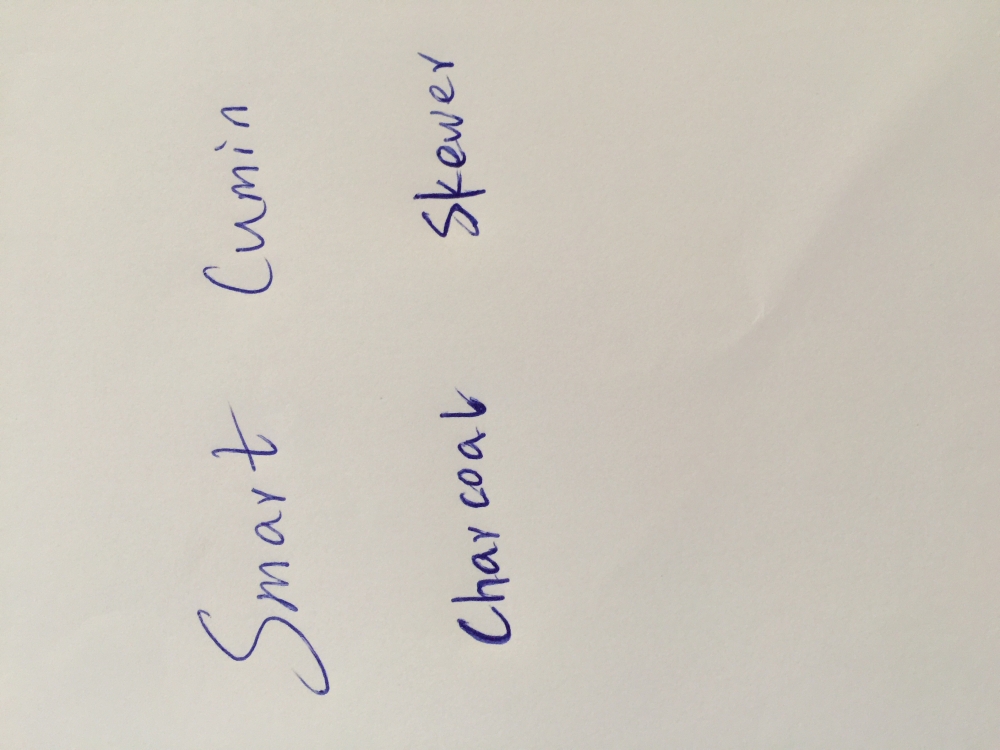 Smart Cumin
Charcoal Skewer